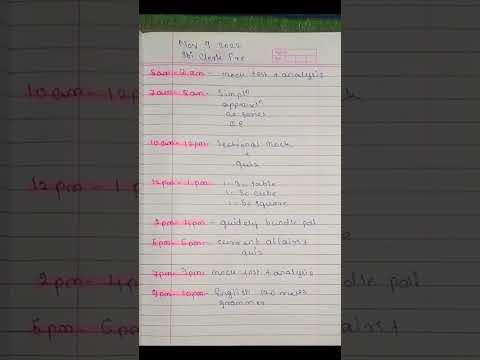 Nov 9 2022
SBI Clerk Pre
5am - 7am - mock test + analysis
7am - 8am - Simplⁿ
approxⁿ
no series
Q E
10am - 12pm - Sectional mock
+
quiz
12pm - 1pm - 1-30 table
1-30 cube
1-50 square
2pm - 4pm - bundle pdf
5pm - 6pm - current affairs +
quiz
7pm - 9pm - mock test + analysis
9pm - 10pm - English
grammer